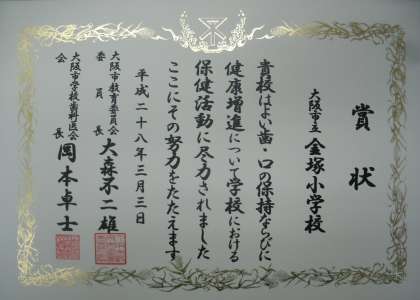 賞状
大阪市立 金塚小学校
貴校はよい歯・口の保持ならびに
健康増進について学校における
保健活動に尽力されました
ここにその努力をたたえます
平成二十八年三月三日
大阪市教育委員会
委員長 大森不二雄
大阪市学校歯科医会
会長 岡本卓士